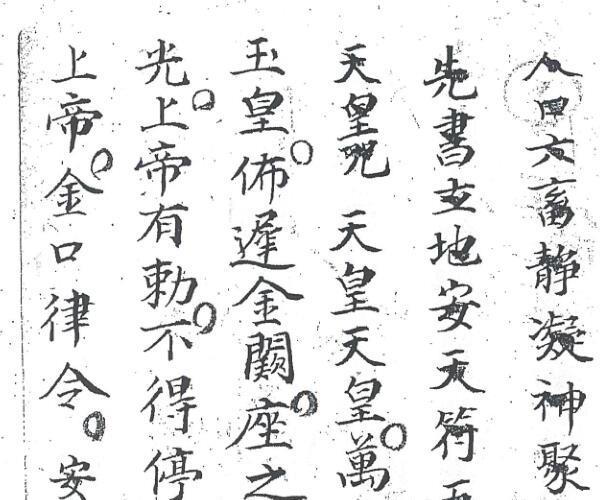 人口六畜静凝神聚
先書玄地安天符
天皇咒 天皇天皇。萬
玉皇。佈遲金闕。座之
光。上帝有勅。不得停
上帝。金口律令。安